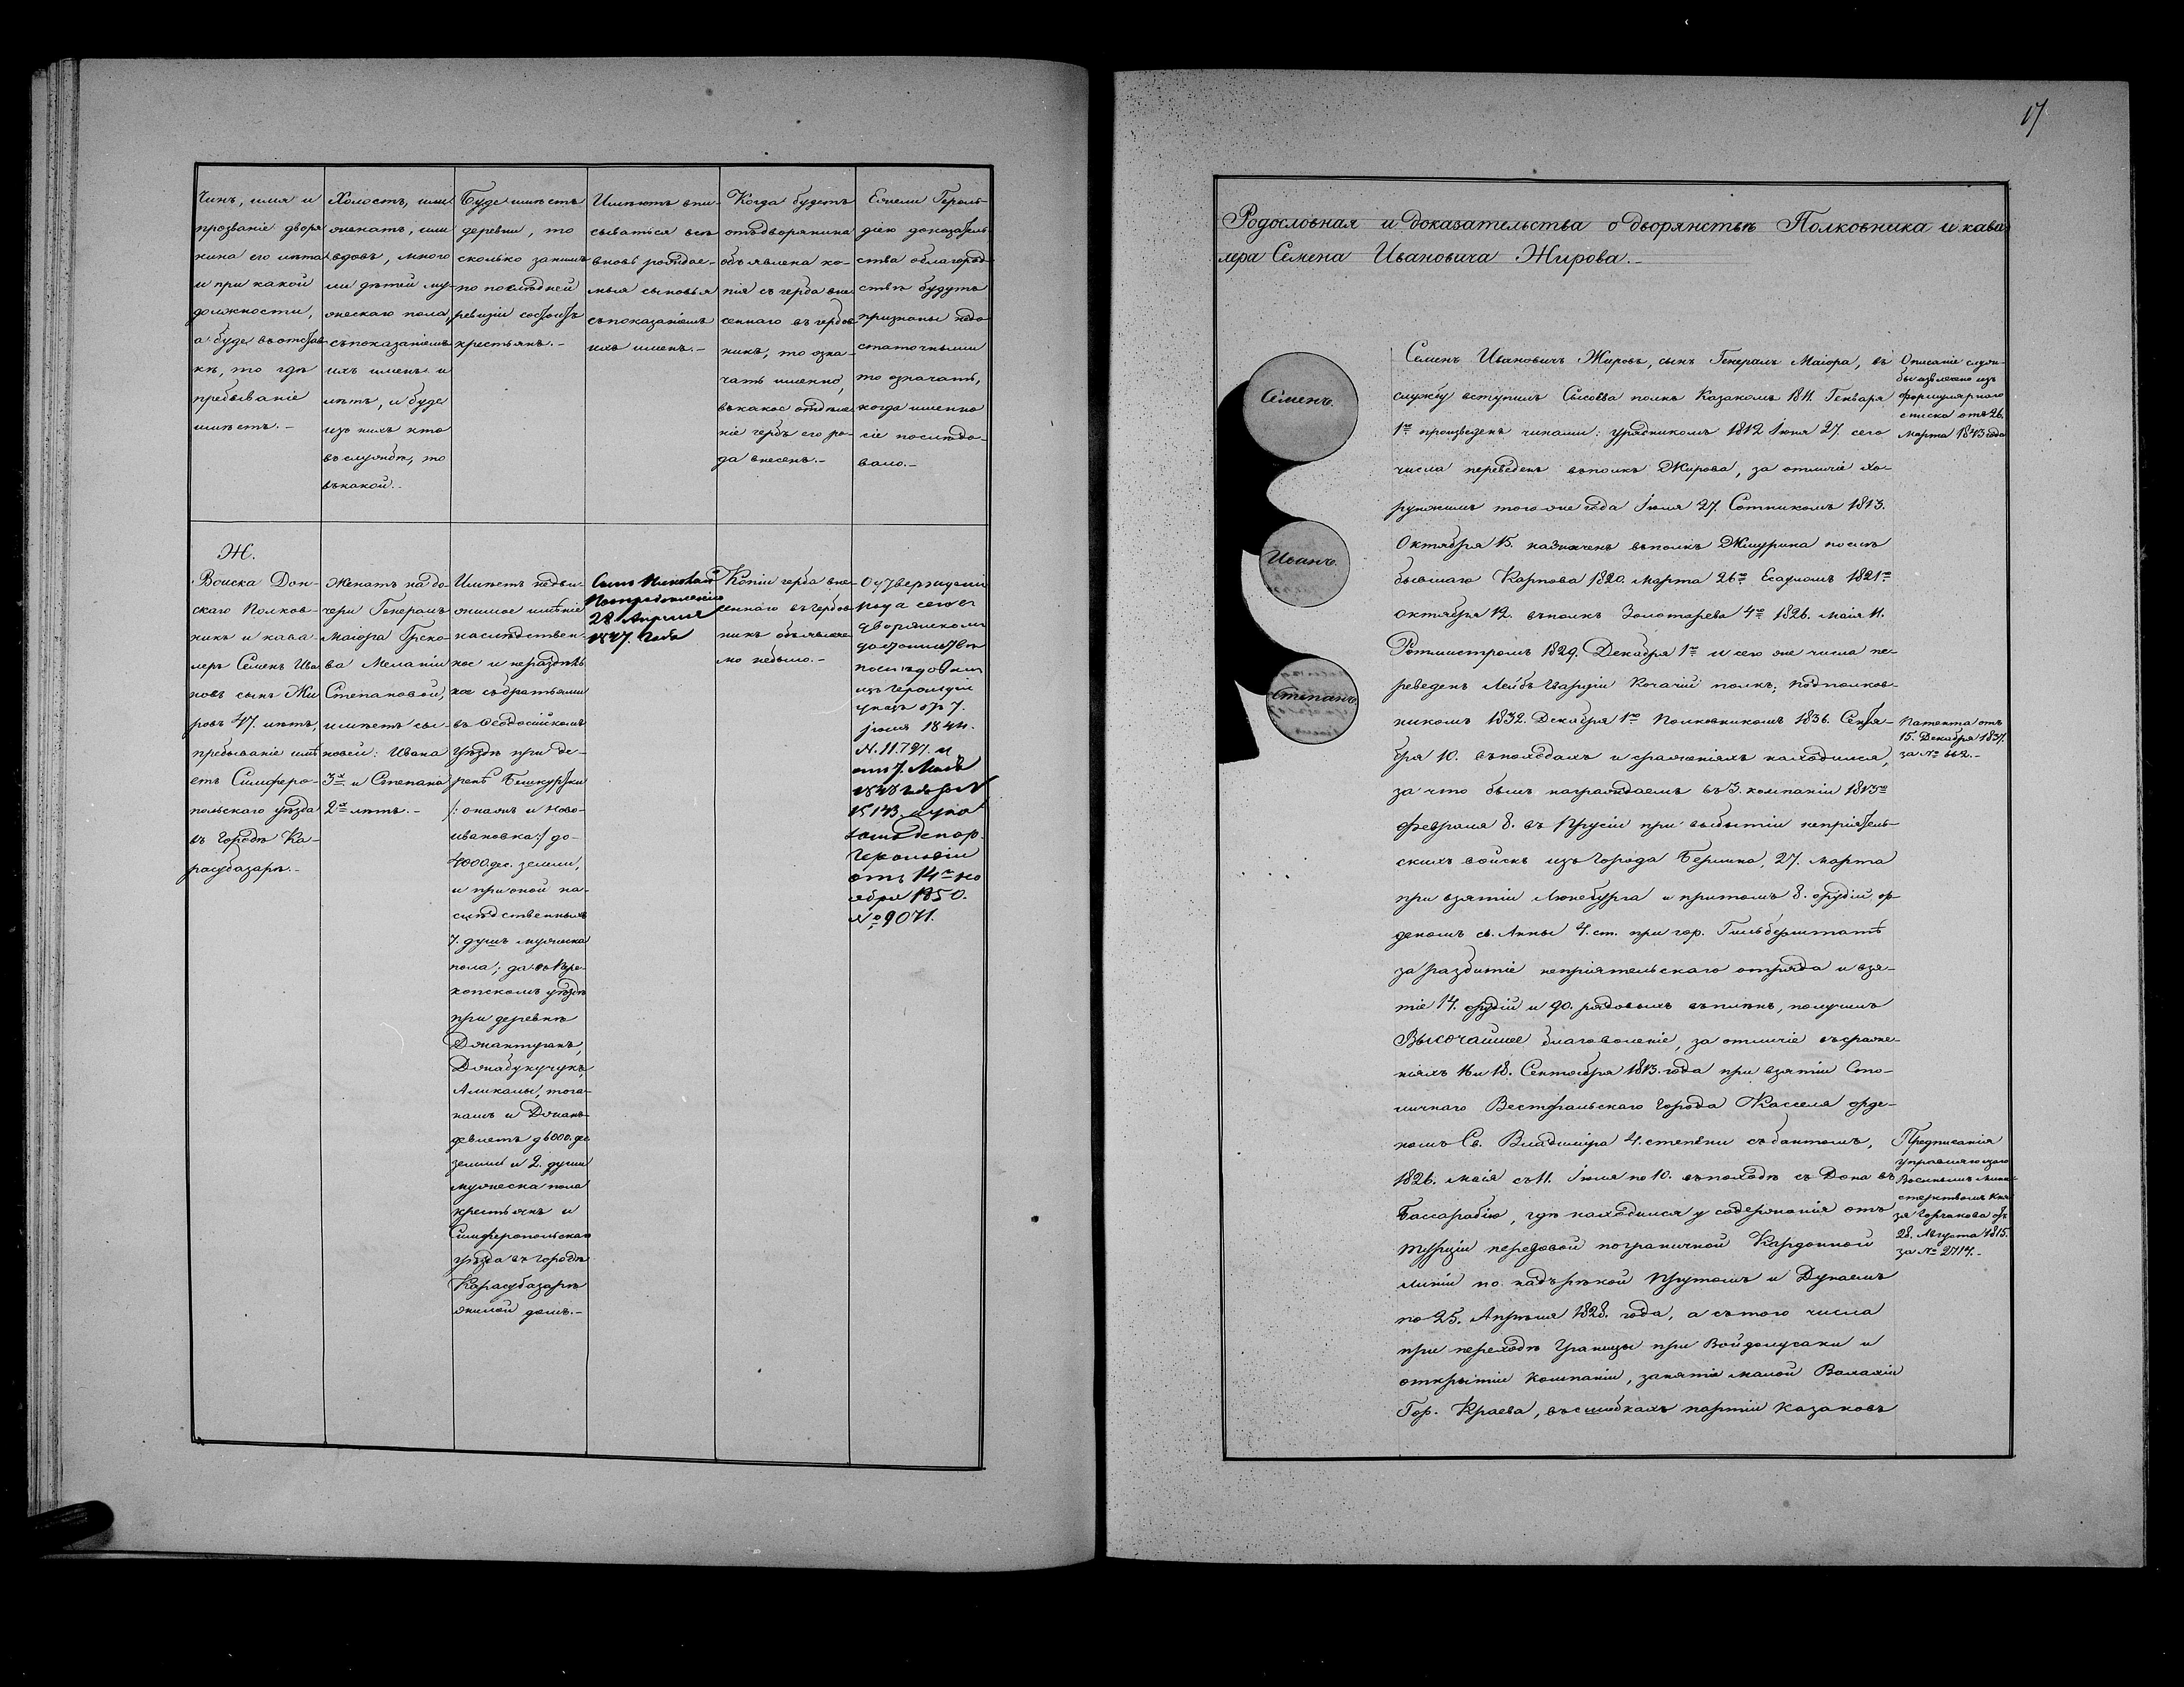 Чинъ, имя и
прозваніе дворя
нина его лѣта
и при какой
должности,
а буде въ отстав
кѣ, то гдѣ
пребываніе
имѣетъ.-
Холостъ, или
женатъ, или
вдовъ, много
ли дѣтей му-
жескаго пола,
съ показаніемъ
ихъ именъ и
лѣтъ, и буде
изъ нихъ кто
въ службѣ, то
въ какой.-
Буде имѣетъ
деревни, то
сколько за нимъ
по послѣдней
ревизіи состоитъ
крестьянъ.-
Имѣютъ впи-
сываться всѣ
вновь рождае-
мыя сыновья
съ показаніемъ
ихъ именъ.-
Когда будетъ
отъ дворянина
объявлена ко-
пія съ герба вне
сеннаго въ гербов
никъ, то озна-
чать именно,
въ какое отдѣле
ніе гербъ его ро-
да внесенъ.-
Ежели Героль-
діею доказатель
ства о благород-
ствѣ будутъ
признаны недо
статочными
то означать,
когда именно
сіе послѣдо-
вало.-
Ж.
Войска Дон-
скаго Полков-
никъ и кава-
леръ Семенъ Ива
новъ сынъ Жи
ровъ 47. лѣтъ,
пребываніе имѣ
етъ Симферо-
польскаго уѣзда
въ городѣ Ка-
расубазарѣ.-
Женатъ на до
чери Генералъ
Маіора Греко
ва Меланіи
Степановой,
имѣетъ сы-
новей: Ивана
3хъ и Степана
2хъ лѣтъ.-
Имѣетъ недви-
жимое имѣніе
наслѣдствен-
ное и нераздѣль
ное съ братьями
въ Ѳеодосійскомъ
уѣздѣ при де-
ревнѣ
/: онажъ и Ново-
ивановка:/ до-
4000. дес. земли,
и при оной на-
слѣдственныхъ
7. душъ мужеска
пола; да въ Пере-
копскомъ уѣздѣ
при деревнѣ
Джантуганъ,
Джабукучукъ,
земли и 2. души
мужеска пола
крестьянъ и
Симферопольскаго
уѣзда въ городѣ
Карасубазарѣ
жилой домъ.-
Сынъ Николай
28 Апрѣля
1847. Года
Копіи герба вне
сеннаго въ гербов
никъ объявле-
но небыло.-
О утвержденіи
рода сего въ
дворянскомъ
достоинствѣ
послѣдовали
изъ Герольдіи
указъ отъ 7.
1844.
N. 11.791. и
отъ 7. Маія
Герольдіи
отъ 14го но
ября 1850.
№ 9071.
17
Родословная и доказательства о дворянствѣ Полковника и кава
лера Семена Ивановича Жирова.-
Семенъ.
Иванъ.
Степанъ.
Семенъ Ивановичъ Жировъ, сынъ Генералъ Маіора, въ
службу вступилъ Сысоева полкъ Казакомъ 1811. Генваря
1го произведенъ чинами: урядникомъ 1812 Іюня 27. сего
числа переведенъ въ полкъ Жирова, за отличіе хо-
рунжимъ того же года Іюля 27. Сотникомъ 1813.
Октября 15. назначенъ въ полкъ после
бывшаго Карпова 1820. Марта 26го Есауломъ 1821го
Октября 12. въ полкъ Золотарева 4го 1826. Маія 11.
Ротмистромъ 1829. Декабря 1го и сего же числа пе-
реведенъ Лейбъ Гвардіи Козачій полкъ; подполков-
никомъ 1832. Декабря 1го Полковникомъ 1836. Сентя-
бря 10. въ походахъ и сраженіяхъ находился,
за что былъ награждаемъ въ 3. компаніи 1813го
Февраля 8. въ Прусіи при выбытіи непріятель-
скихъ войскъ изъ города Берлина, 27. Марта
при взятіи Люнебурга и притомъ 8. орудій, ор-
деномъ св. Анны 4. ст. при гор. Гильберштатѣ
за разбитіе непріятельскаго отряда и взя-
тіе 14. орудій и 90. рядовыхъ въ плѣнъ, получилъ
Высочайшее благоволеніе, за отличіе въ сраже-
ніяхъ 16 и 18. Сентября 1813. года при взятіи Сто-
личнаго Вестфальскаго города Касселя орде-
номъ Св. Владиміра 4. степени съ бантомъ,
1826. Маія съ 11. Іюля по 10. въ походѣ съ Дона въ
Бассарабію, гдѣ находился у содержанія отъ
Турціи передовой пограничной Кардонной
линіи по надъ рѣкой Прутомъ и Дунаемъ
по 25. Апрѣля 1828. года, а съ того числа
при переходѣ границы при и
открытіи компаніи, занятіе малой Валахіи
Гор. Краева, въ сшибкахъ партіи казаковъ
Описаніе служ-
бы извлечено изъ
формулярнаго
списка отъ 26.
Марта 1843 года
Патента отъ
15. Декабря 1837.
за № 662.-
Предписанія
управляющаго
Военнымъ Мини-
стерствомъ Кня
зя Горчакова отъ
28. Августа 1815.
за № 2714.-